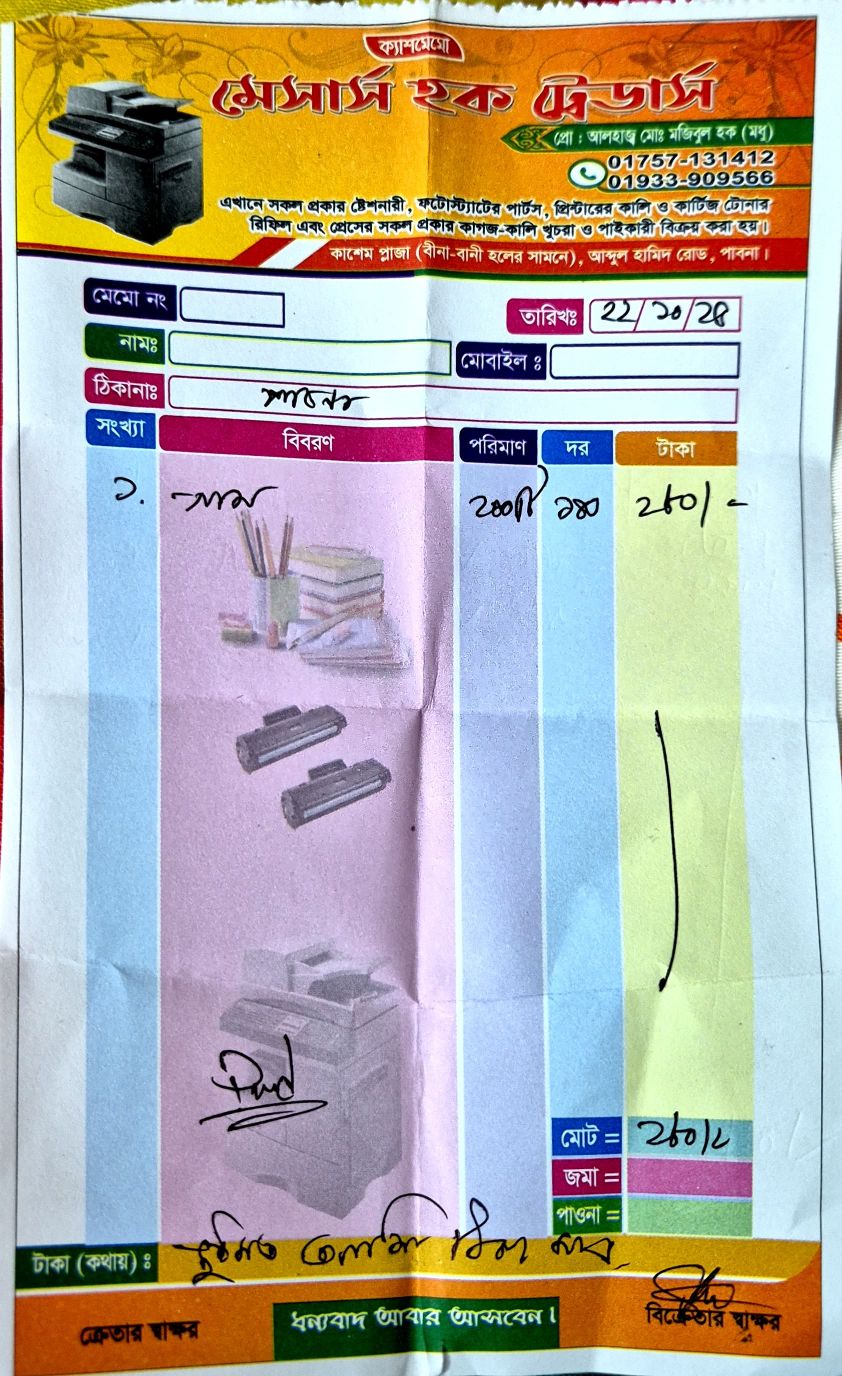 ক্যাশমেমো
মেসার্স হক ট্রেডার্স
প্রো : আলহাজ্ব মোঃ মজিবুল হক (মধু)
01757-131412
01933-909566
এখানে সকল প্রকার ষ্টেশনারী, ফটোস্ট্যাটের পার্টস, প্রিন্টারের কালি ও কার্টিজ টোনার
রিফিল এবং প্রেসের সকল প্রকার কাগজ-কালি খুচরা ও পাইকারী বিক্রয় করা হয়।
কাশেম প্লাজা (বীনা-বানী হলের সামনে), আব্দুল হামিদ রোড, পাবনা।
মেমো নং
তারিখঃ ২২/১০/২৪
নামঃ মোবাইল ঃ
ঠিকানাঃ পাবনা
সংখ্যা বিবরণ পরিমাণ দর টাকা
১. খাম ২৮০/-
Paid
মোট = ২৮০/-
জমা =
পাওনা =
টাকা (কথায়) ঃ
ক্রেতার স্বাক্ষর ধন্যবাদ আবার আসবেন। বিক্রেতার স্বাক্ষর